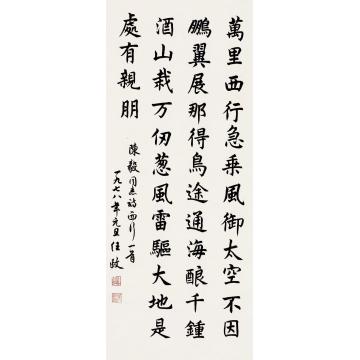 萬里西行急乘風御太空不因
鵬翼展那得鳥途通海釀千鍾
酒山栽万仞葱風雷驅大地是
處有親朋
陳毅同志詩西行一首
一九七八年元旦任政